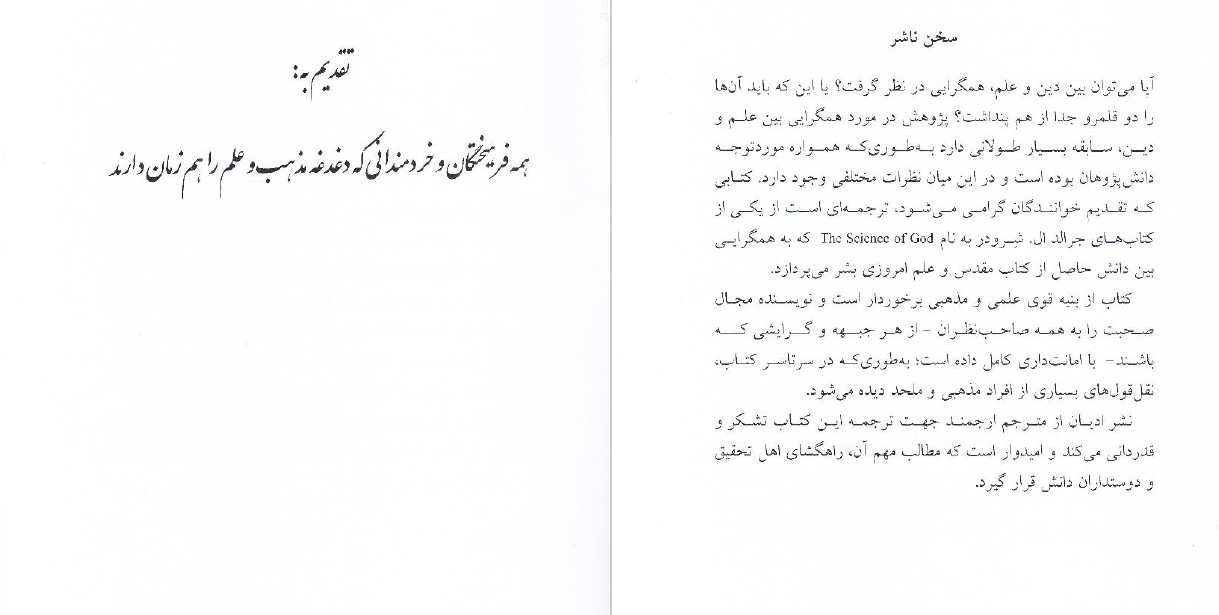 سخن ناشر
آیا می‌توان بین دین و علم، همگرایی در نظر گرفت؟ یا این که باید آن‌ها
را دو قلمرو جدا از هم پنداشت؟ پژوهش در مورد همگرایی بین علم و
دین، سابقه بسیار طولانی دارد به‌طوری‌که همواره موردتوجه
دانش‌پژوهان بوده است و در این میان نظرات مختلفی وجود دارد. کتابی
که تقدیم خوانندگان گرامی می‌شود، ترجمه‌ای است از یکی از
کتاب‌های جرالد ال. شِرودر به نام The Science of God که به همگرایی
بین دانش حاصل از کتاب مقدس و علم امروزی بشر می‌پردازد.
کتاب از بنیه قوی علمی و مذهبی برخوردار است و نویسنده مجال
صحبت را به همه صاحب‌نظران - از هر جبهه و گرایشی که
باشند- با امانت‌داری کامل داده است؛ به‌طوری‌که در سرتاسر کتاب،
نقل‌قول‌های بسیاری از افراد مذهبی و ملحد دیده می‌شود.
نشر ادیان از مترجم ارجمند جهت ترجمه این کتاب تشکر و
قدردانی می‌کند و امیدوار است که مطالب مهم آن، راهگشای اهل تحقیق
و دوستداران دانش قرار گیرد.
تقدیم به:
همه فریختگان و خردمندانی که دغدغه مذهب و علم را هم زمان دارند